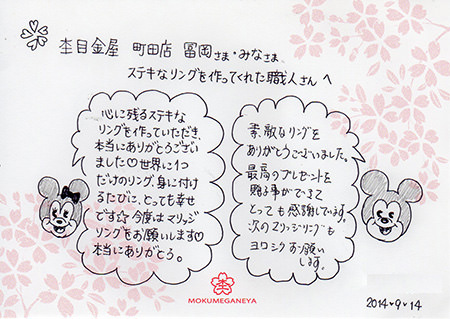 杢目金屋 町田店 冨岡さま・みなさま
ステキなリングを作ってくれた職人さんへ
心に残るステキな
リングを作っていただき、
本当にありがとうござい
ました♡世界に1つ
だけのリング、身に付け
るたびに、とっても幸せ
です☆今度はマリッジ
リングをお願いします♡
本当にありがとう。
素敵なリングを
ありがとうございました。
最高のプレゼントを
贈る事ができて
とっても感謝しています。
次のマリッジリングも
ヨロシクお願い
します。
MOKUMEGANEYA
2014・9・14